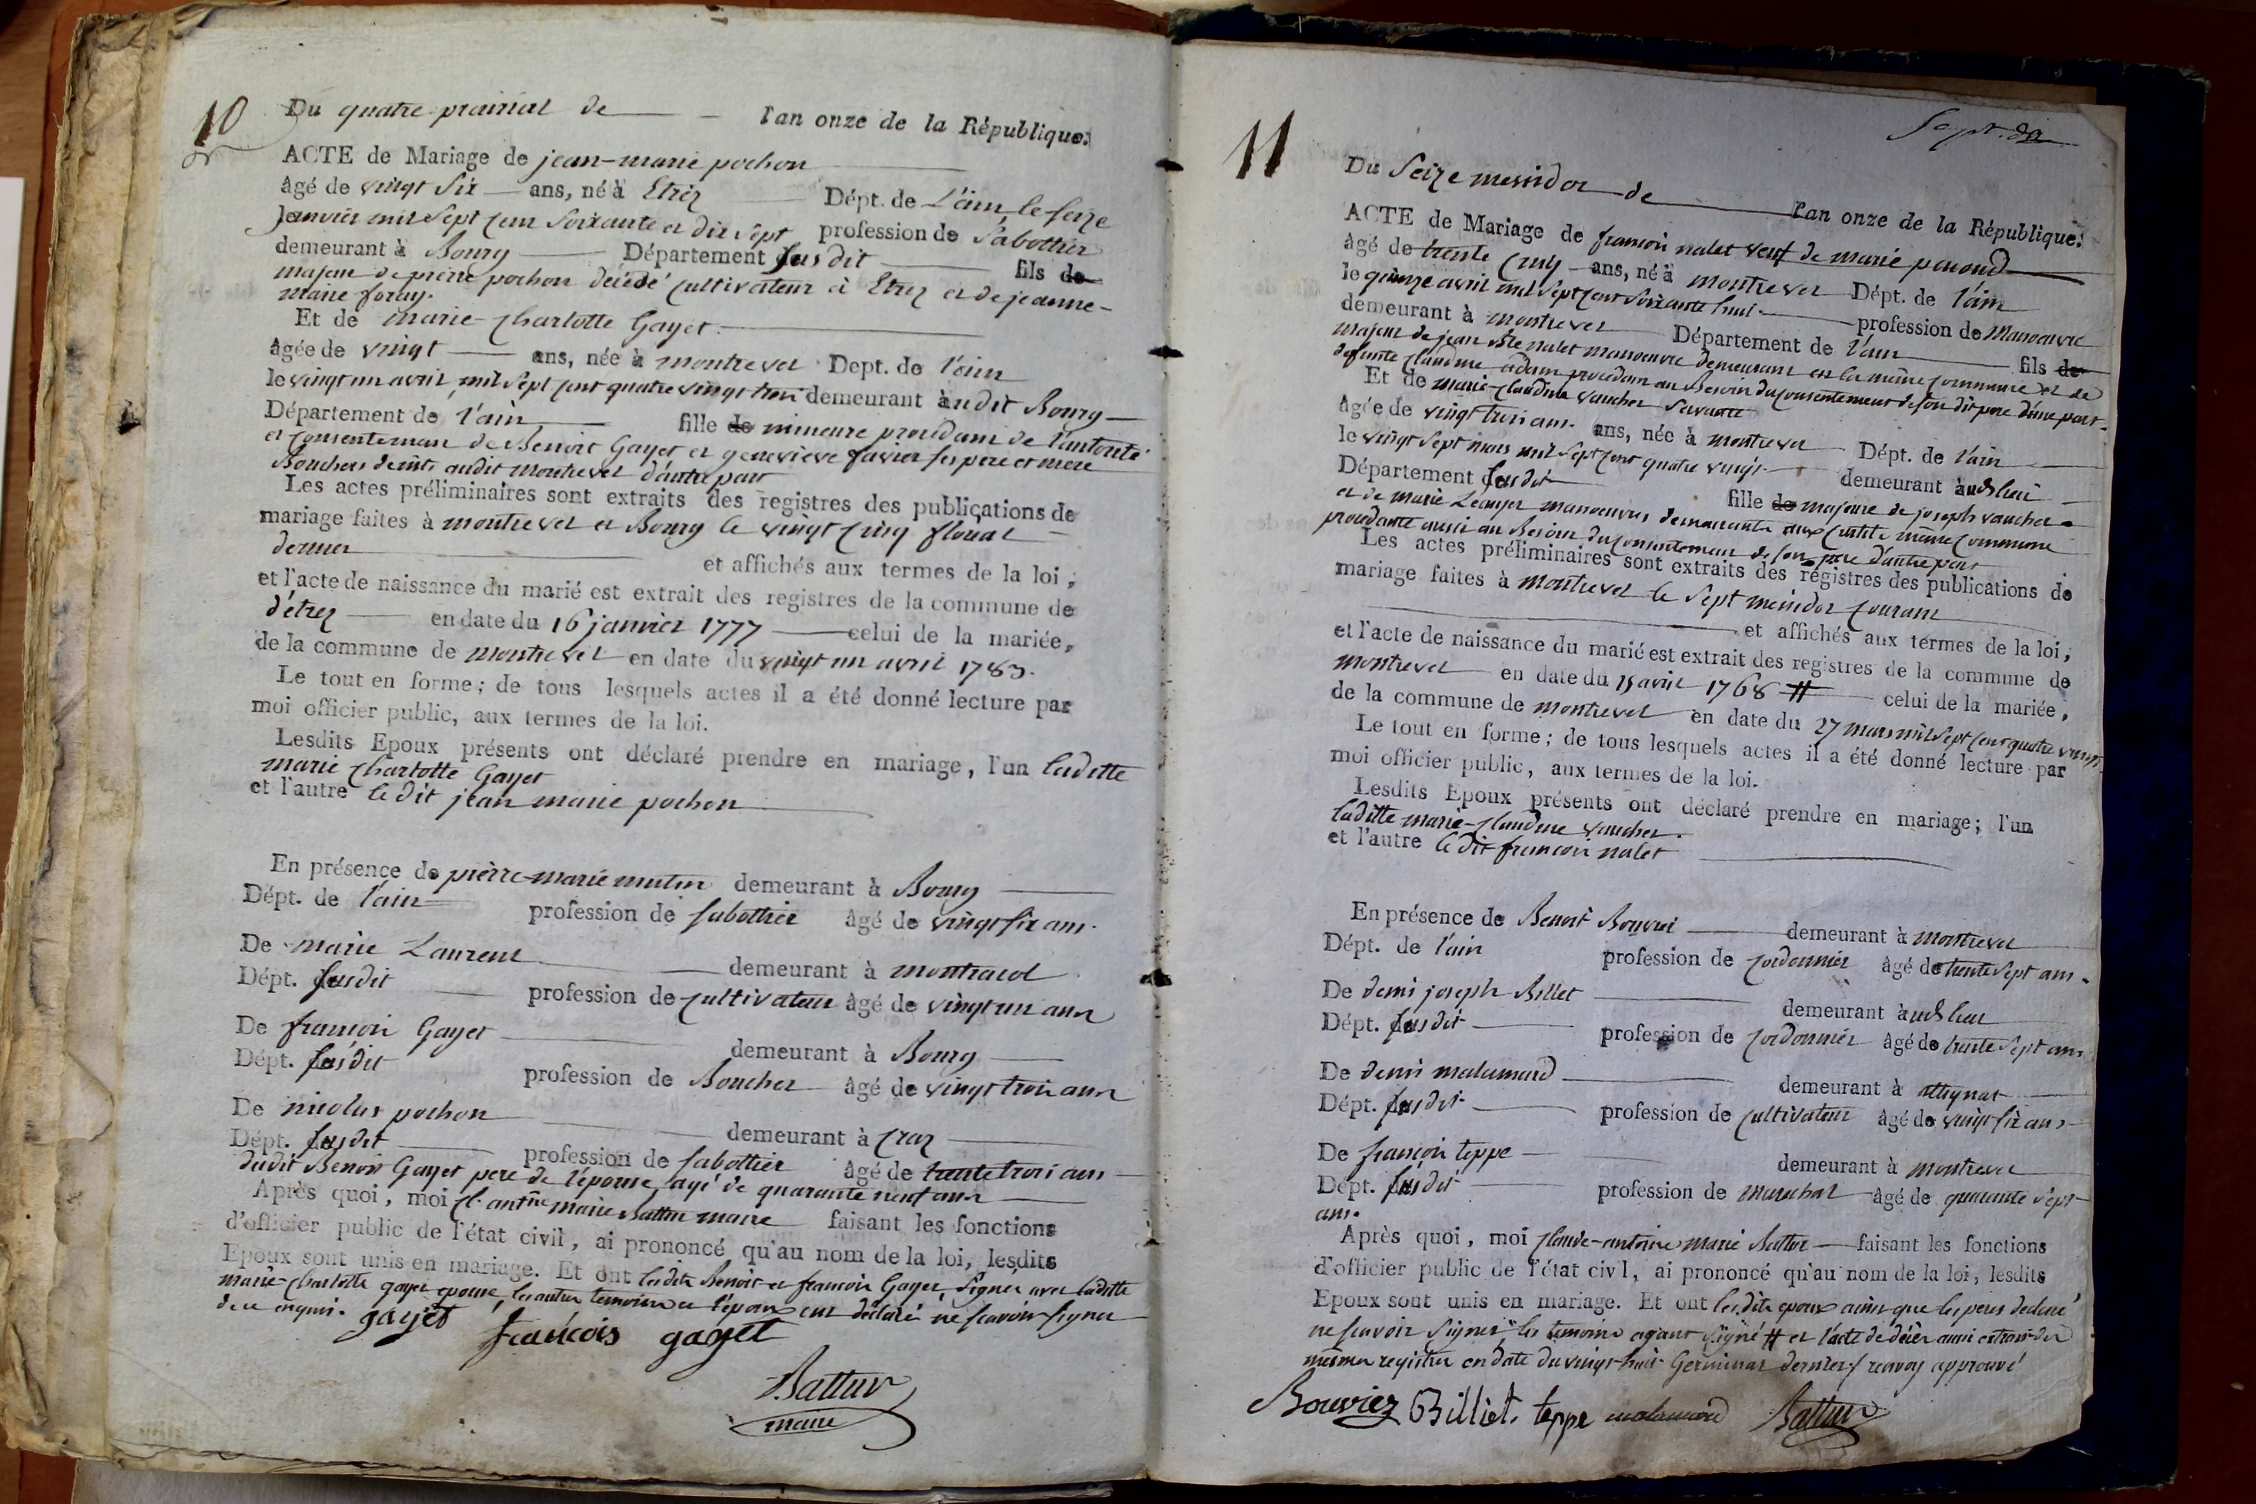 10
Du quatre prairial de l'an onze de la République.
ACTE de Mariage de jean-marie pochon
âgé de vingt six ans, né à Etrez Dépt. de L'ain le seize
janvier mil sept cent soixante et dix sept profession de Sabottier
demeurant à Bourg Département susdit fils de
majeur de pierre pochon décédé cultivateur à Etrez et de jeanne-
marie foray.
Et de marie charlotte Gayet.
âgée de vingt ans, née à montrevel Dept. de l'ain
le vingt un avril mil sept cent quatre vingt trois demeurant audit Bourg
Département de l'ain fille de mineure procedant de l'autorité
et consentement de Benoit Gayet et genevieve favier ses pere et mere
Bouchers demts audit montrevel d'autre part
Les actes préliminaires sont extraits des registres des publications de
mariage faites à montrevel et Bourg le vingt cinq floréal
dernier et affichés aux termes de la loi,
et l'acte de naissance du marié est extrait des registres de la commune de
d'étrez en date du 16 janvier 1777 celui de la mariée,
de la commune de montrevel en date du vingt un avril 1783.
Le tout en forme; de tous lesquels actes il a été donné lecture par
moi officier public, aux termes de la loi.
Lesdits Epoux présents ont déclaré prendre en mariage, l'un laditte
marie charlotte Gayet
et l'autre le dit jean marie pochon
En présence de pierre-marie mutin demeurant à Bourg
Dépt. de l'ain profession de sabottier âgé de vingt six ans.
De marie Laurent demeurant à montracol
Dépt. susdit profession de cultivateur âgé de vingt un ans
De francois Gayet demeurant à Bourg
Dépt. susdit profession de Boucher âgé de vingt trois ans
De nicolas pochon demeurant à Craz
Dépt. susdit profession de sabottier âgé de trente trois ans
dudit Benoit Gayet pere de l'epouse agé de quarante neuf ans
Après quoi, moi Cl. antne marie Battur maire faisant les fonctions
d'officier public de l'état civil, ai prononcé qu'au nom de la loi, lesdits
Epoux sont unis en mariage. Et ont lesdits Benoit et francois Gayet, signer avec laditte
marie-charlotte gayet epouse, les autres temoins et l'époux ont déclaré ne scavoir signer
de ce enquis. gayet
francois gayet
Battur
maire
Sept. 82
11
Du Seize messidor de l'an onze de la République.
ACTE de Mariage de francois nalet veuf de marie penond
âgé de trente cinq ans, né à montrevel Dépt. de l'ain
le quinze avril mil sept cent soixante huit profession de Manoeuvre
demeurant à montrevel Département de l'ain fils de
majeur de jean Bte nalet manoeuvre demeurant en la même commune et de
defunte claudine adam procedant au Besoin du consentement de son dit pere d'une part.
Et de marie-claudine vaucher servante
âgée de vingt trois ans. ans, née à montrevel Dépt. de l'ain
le vingt sept mars mil sept cent quatre vingt demeurant audt lieu
Département susdit fille de majeure de joseph vaucher
et de marie Lecuyer manoeuvres demeurants aux cettite même commune
procedante aussi au Besoin du consentement de son pere d'autre part
Les actes préliminaires sont extraits des régistres des publications de
mariage faites à montrevel le sept messidor courant
et affichés aux termes de la loi,
et l'acte de naissance du marié est extrait des registres de la commune de
montrevel en date du 15 avril 1768 # celui de la mariée,
de la commune de montrevel en date du 27 mars mil sept cent quatre vingt.
Le tout en forme; de tous lesquels actes il a été donné lecture par
moi officier public, aux termes de la loi.
Lesdits Epoux présents ont déclaré prendre en mariage; l'un
laditte marie-claudine vaucher.
et l'autre le dit francois nalet
En présence de Benoit Bouvrei demeurant à montrevel
Dépt. de l'ain profession de cordonnier âgé de trente sept ans.
De denis joseph Billet demeurant audt lieu
Dépt. susdit profession de cordonnier âgé de trente sept ans
De denis malamard demeurant à attignat
Dépt. susdit profession de cultivateur âgé de vingt six ans
De francois teppe demeurant à montrevel
Dépt. susdit profession de marechal âgé de quarante sept
ans.
Après quoi, moi claude-antoine marie Battur faisant les fonctions
d'officier public de l'état civil, ai prononcé qu'au nom de la loi, lesdits
Epoux sont unis en mariage. Et ont lesdits epoux ainsi que les peres declaré
ne scavoir signer les temoins ayant signé # et l'acte de décès aussi extrait des
mêmes registres en date du vingt-huit Germinal dernier / renvoy approuvé
Bouvier Billiet. teppe malamard Battur